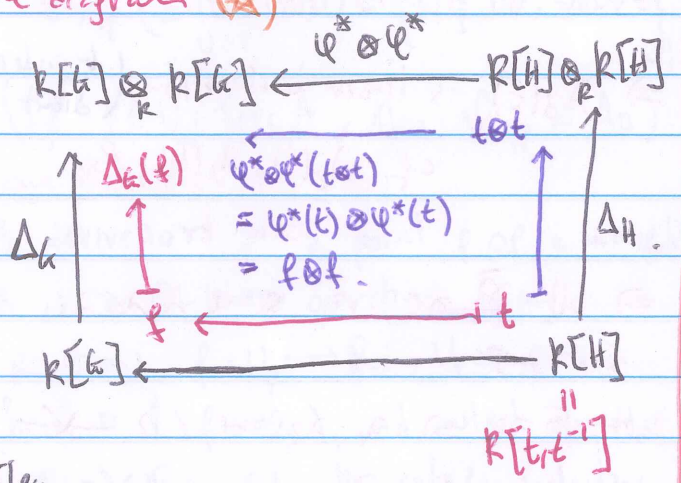 diagram (☆)
φ* ⊗ φ*
k[G] ⊗ₖ k[G] ← k[H] ⊗ₖ k[H]
t⊗t
Δ_G(f)
φ*⊗φ*(t⊗t)
= φ*(t) ⊗ φ*(t)
= f⊗f.
Δ_G
Δ_H.
f ← t
k[G] ← k[H]
=
k[t, t⁻¹]